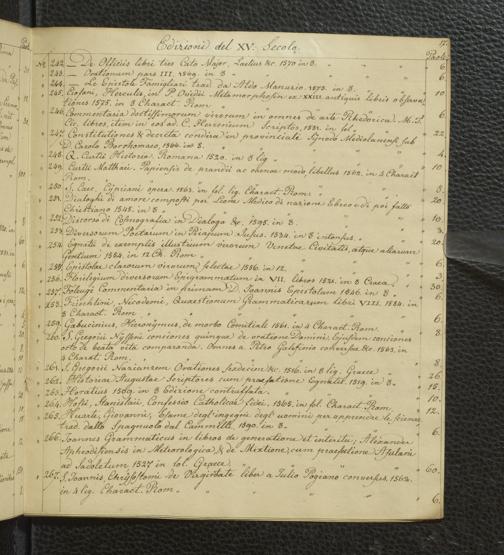 Edizioni del XV. Secolo.
17.
Paoli.
No 242. De Officiis libri tres Cato Major, Laelius &c. 1570 in 8. 6.
243. — Orationum pars III. 1549. in 8 6.
244. — Le Epistole Famigliari trad. da Aldo Manuzio. 1573. in 8.
245. Ciofani, Herculis, in P. Ovidii Metamorphosin ex XXIII. antiquis libris observa- 10
tiones 1575. in 8 Charact. Rom.
246. Commentaria doctissimorum virorum in omnes de arte Rhetorica M. T.
Cic. libros, item in eos ad C. Herennium Scriptos, 1551. in fol. 22
247. Constitutiones & decreta condita in provinciale Synodo Mediolanensi sub
D. Carolo Borrhomaeo, 1566. in 8.
248. Q. Curtii Historia Romana. 1520. in 8 lig. 4.
249. Curtii Matthaei Papiensis de prandii ac coenae modo libellus 1562. in 4 Charact. 10.
Rom.
250. S. Caec. Cypriani opera. 1563. in fol. lig. Charact. Rom. 3.
251. Dialoghi di amore composti per Leone Medico di nazione Ebreo e di poi fatto 20.
Christiano 1545. in 8.
252. Discorso di Cosmografia in Dialogo &c. 1595. in 8. 4.
253. Diversorum Poetarum in Priapum Lusus. 1534. in 8 3.
254. Egnatii de exemplis illustrium virorum Venetae Civitatis atque aliarum 20.
Gentium 1554. in 12 Ch. Rom.
255. Epistolae clarorum virorum selectae 1556. in 12. 6.
256. Florilegium diversorum Epigrammatum in VII. libros 1521. in 8 Graece. 3.
257. Folengi Commentaria in primam D. Joannis Epistolam 1546. in 8 30.
258. Frischlini, Nicodemi, Quaestionum Grammaticarum libri VIII. 1584. in 6.
8 Charact. Rom.
259. Gabucinius, Hieronymus, de morbo Comitiali 1561. in 4 Charact. Rom. 6.
260. S. Gregorii Nysseni conciones quinque de oratione Domini, Ejusdem conciones 8
octo de beata vita comparanda. Omnes a Petro Galesinio conversae &c. 1563. in
4 Charact. Rom.
261. S. Gregorii Nazianzeni Orationes, sexdecim &c. 1516. in 8 lig. Graece 8
262. Historiae Augustae Scriptores cum praefatione Egnatii. 1519. in 8. 26.
263. Horatius 1509. in 8 Edizione contraffatta. 15.
264. Hosii, Stanislai, Confessio Catholicae fidei, 1565. in fol. Charact. Rom. 10.
265. Huarte, Giovanni, Esame degl'ingegni degli uomini per apprendere le scienze, 12.
trad. dallo Spagnuolo dal Cammilli 1590. in 8. 6.
266. Joannes Grammaticus in libros de generatione et interitu; Alexander
Aphrodisiensis in Meteorologica, & de Mixtione, cum praefatione Asulani
ad Sadoletum 1527 in fol. Graece. 60.
267. S. Joannis Chrysostomi de Virginitate liber a Julio Pogiano conversus. 1562.
in 4 lig. Charact. Rom. 6.